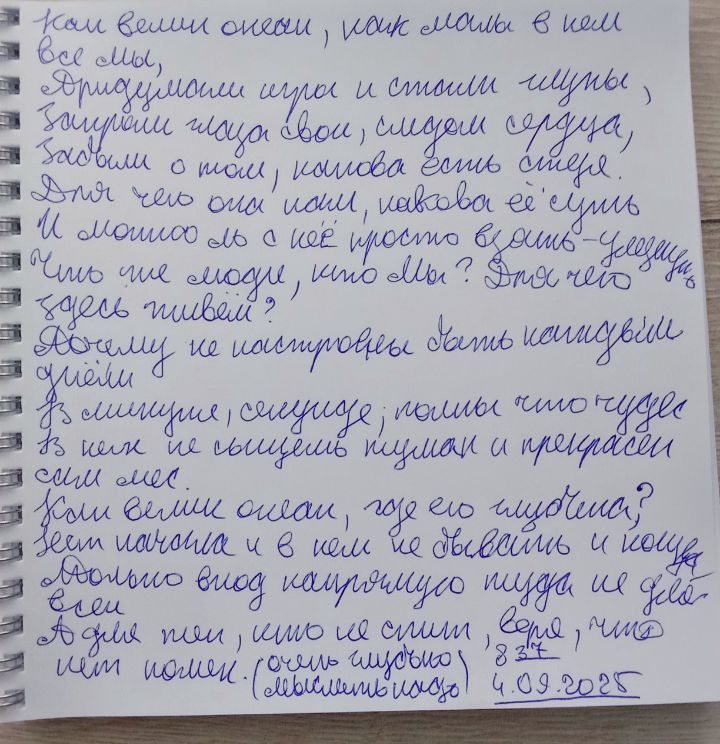 Как велик океан, как малы в нем
все мы,
Придумали игры и стали глупы,
Закрыли глаза свои, следом сердца,
Забыли о том, какова есть стезя.
Для чего она нам, какова её суть
И можно ль с неё просто взять
Что же люди, кто мы? Для чего
здесь живём?
Почему не настроены быть каждым
днём
В минуте, секунде, полны что чудес
В нем не сыщешь туман и прекрасен
сам лес.
Как велик океан, где его глубина?
Нет начала и в нем не бывать и конца
Только вход напрямую туда не для
всех
А для тех, кто не спит, веря, что
нет помех. (очень глубоко
мыслить надо)
837
4.09.2025